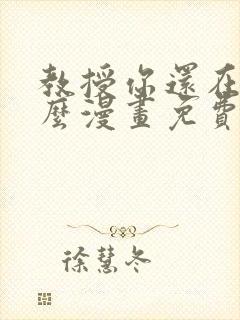 教授你還在
麼漫畫免費
徐慧冬